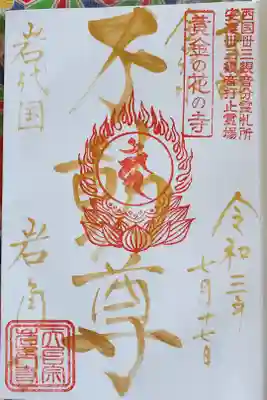 西国卅三観音分霊札所
安達卅三観音打止霊場
黄金の花の寺
令和三年
七月十七日
不動尊
岩代国
岩角